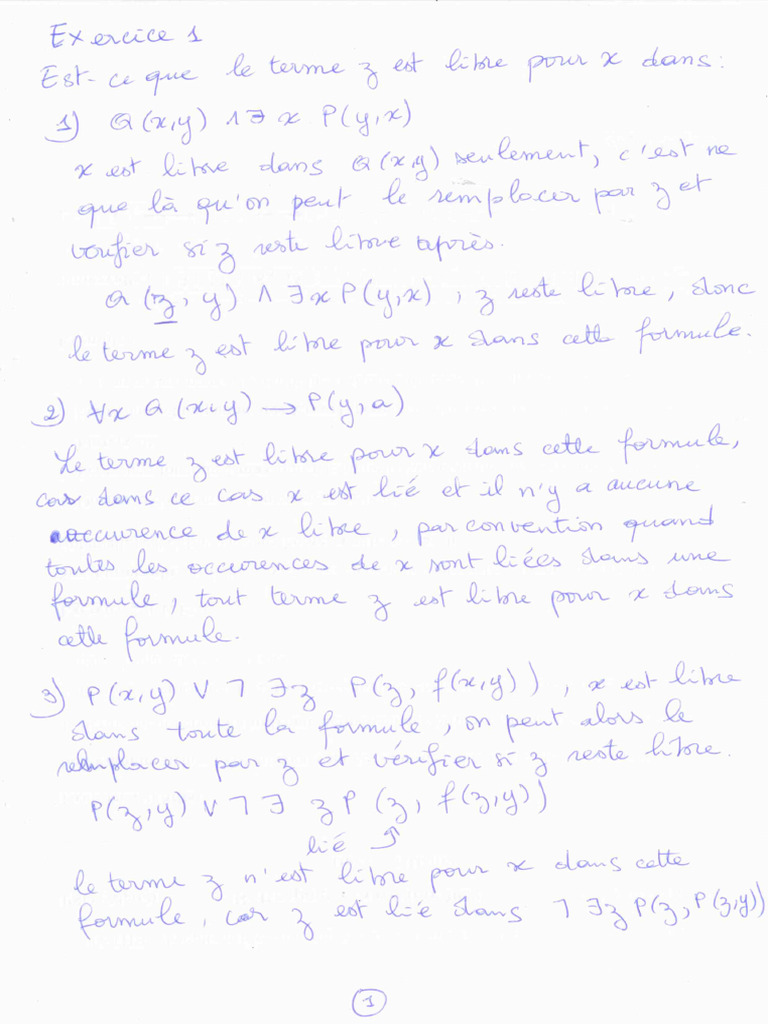 Exercice 1
Est-ce que le terme z est libre pour x dans :
1) Q(x,y) ∧ ∃ x P(y,x)
x est libre dans Q(x,y) seulement, c'est ne
que là qu'on peut le remplacer par z et
vérifier si z reste libre après.
Q(z, y) ∧ ∃x P(y,x), z reste libre, donc
le terme z est libre pour x dans cette formule.
2) ∀x Q(x,y) → P(y,a)
Le terme z est libre pour x dans cette formule,
car dans ce cas x est lié et il n'y a aucune
occurence de x libre, par convention quand
toutes les occurences de x sont liées dans une
formule, tout terme z est libre pour x dans
cette formule.
3) P(x,y) ∨ ¬ ∃z P(z, f(x,y)), x est libre
dans toute la formule, on peut alors le
remplacer par z et vérifier si z reste libre.
P(z,y) ∨ ¬ ∃ z P(z, f(z,y))
lié
le terme z n'est libre pour x dans cette
formule, car z est lié dans ¬ ∃z P(z, P(z,y))
1